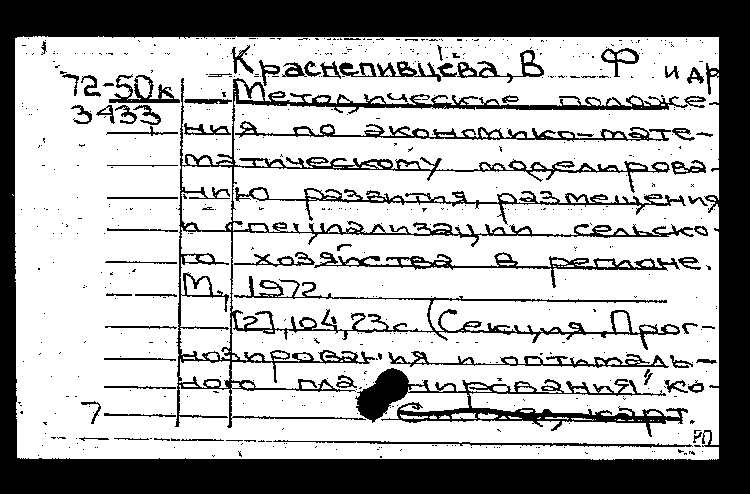 Краснепивцева, В Ф и др
72-50к Методические положе-
3433 ния по экономико-мате-
матическому моделирова-
нию развития, размещения
и специализации сельско-
го хозяйства в регионе.
М., 1972.
[2], 104, 23 с. (Секция "Прог-
нозирования и оптималь-
ного планирования" ко-
7 См. след. карт.
РП